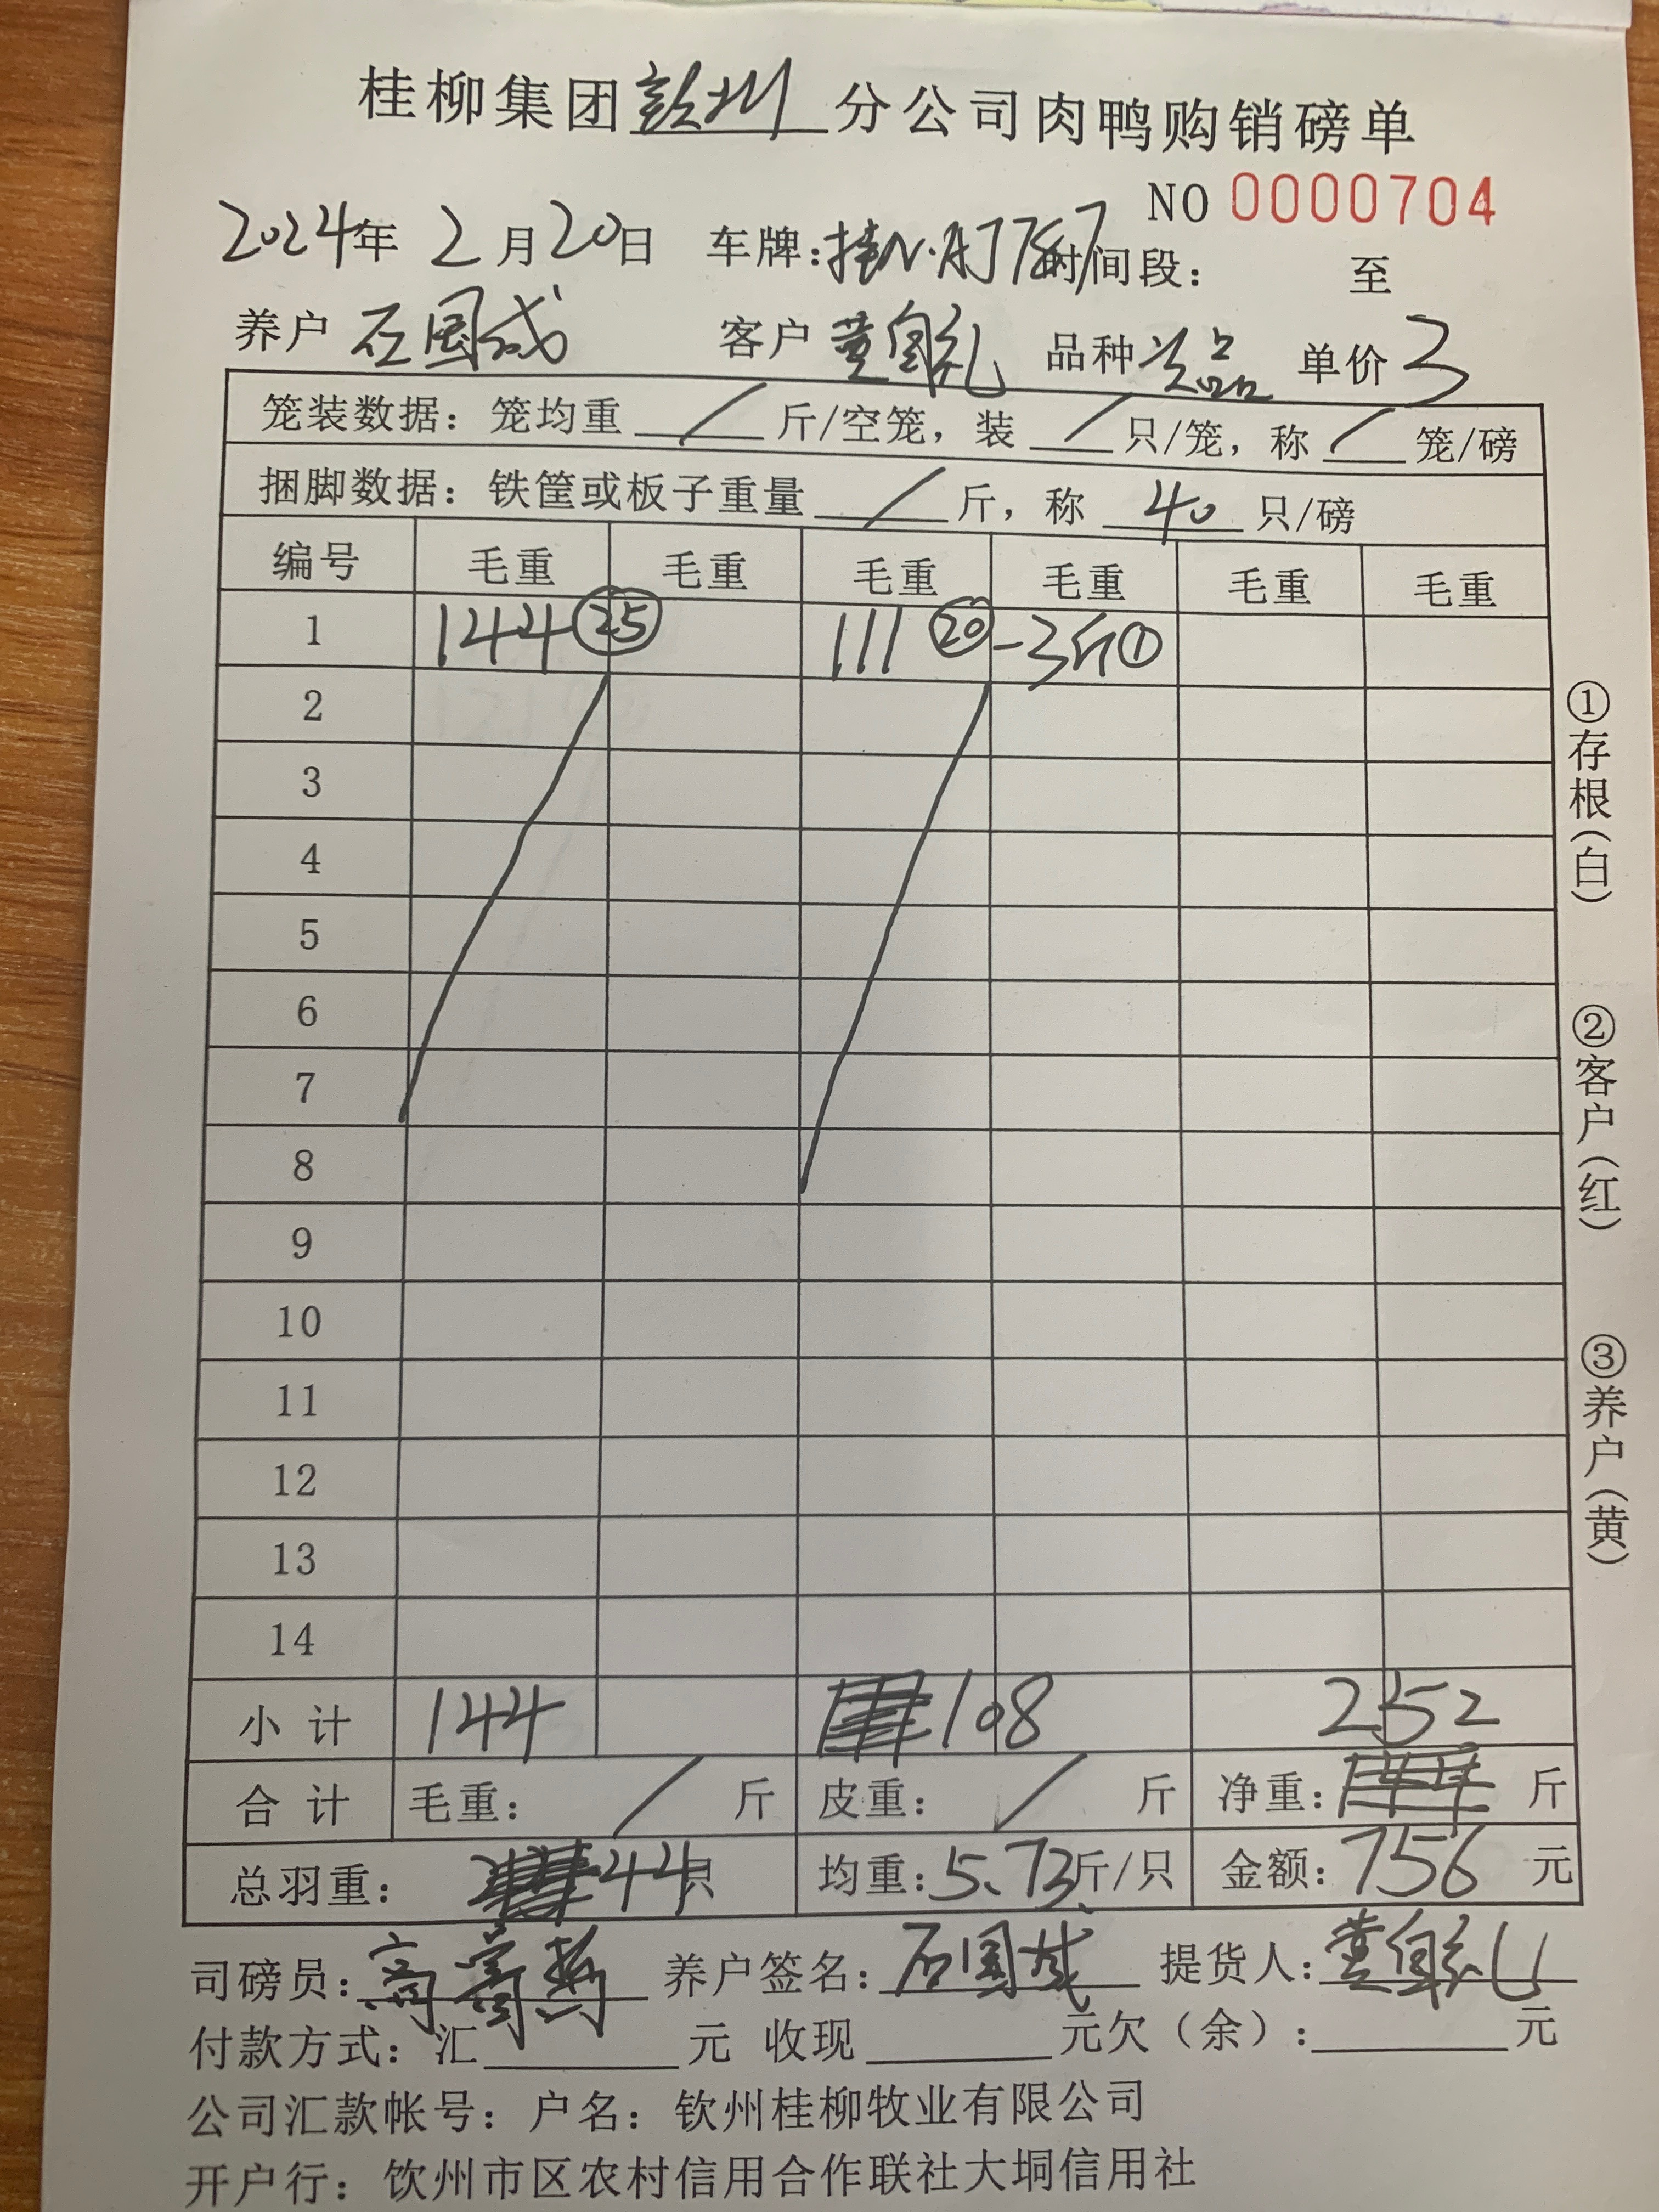 桂柳集团钦州分公司肉鸭购销磅单
NO 0000704
2024年 2月20日 车牌: 时间段: 至
养户 石国成 客户 黄 礼 品种 次品 单价 3
笼装数据: 笼均重 / 斤/空笼, 装 / 只/笼, 称 / 笼/磅
捆脚数据: 铁筐或板子重量 / 斤, 称 40 只/磅
编号 毛重 毛重 毛重 毛重 毛重 毛重
1 144 ㉕ 111 ⑳ -3斤①
2
3
4
5
6
7
8
9
10
11
12
13
14
小计 144 108 252
合计 毛重: / 斤 皮重: / 斤 净重: 斤
总羽重: 44只 均重: 5.73斤/只 金额: 756 元
司磅员: 养户签名: 石国成 提货人: 黄 礼
付款方式: 汇 元 收现 元欠(余): 元
公司汇款帐号: 户名: 钦州桂柳牧业有限公司
开户行: 钦州市区农村信用合作联社大垌信用社
①存根(白)
②客户(红)
③养户(黄)